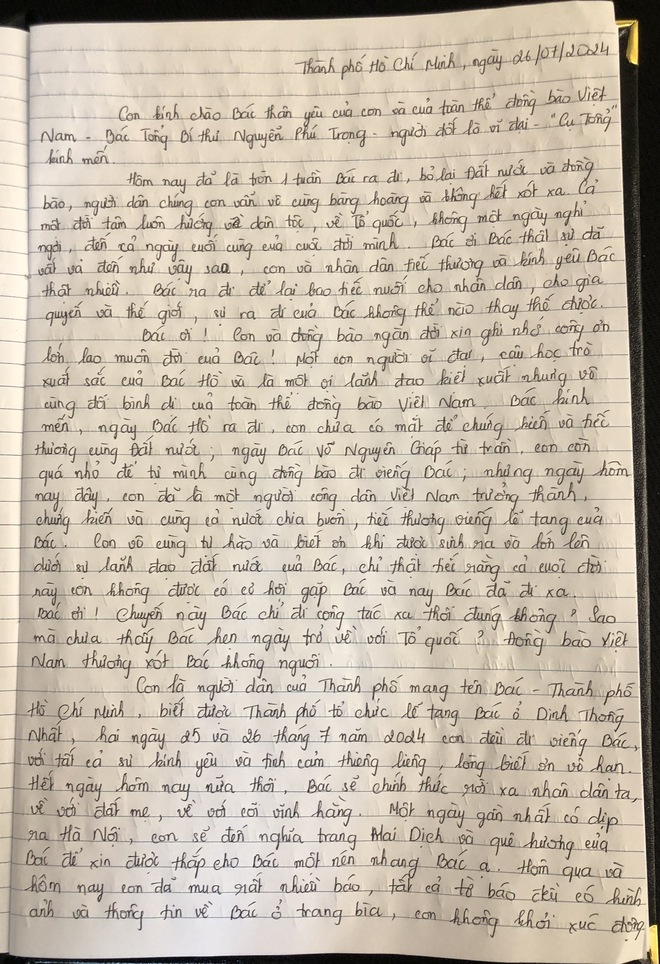 Thành phố Hồ Chí Minh, ngày 26/07/2024
Con kính chào Bác thân yêu của con và của toàn thể đồng bào Việt
Nam - Bác Tổng Bí thư Nguyễn Phú Trọng - người đốt lò vĩ đại - "Cụ Tổng"
kính mến.
Hôm nay đã là tròn 1 tuần Bác ra đi, bỏ lại Đất nước và đồng
bào, người dân chúng con vẫn vô cùng bàng hoàng và không hết xót xa. Cả
một đời tận luôn hướng về dân tộc, về Tổ quốc, không một ngày nghỉ
ngơi, đến cả ngày cuối cùng của cuộc đời mình. Bác ơi Bác thật sự đã
vất vả đến như vậy sao, con và nhân dân tiếc thương và kính yêu Bác
thật nhiều. Bác ra đi để lại bao tiếc nuối cho nhân dân, cho gia
quyến và thế giới, sự ra đi của Bác không thể nào thay thế được.
Bác ơi! Con và đồng bào ngàn đời xin ghi nhớ công ơn
lớn lao muôn đời của Bác! Một con người vĩ đại, cậu học trò
xuất sắc của Bác Hồ và là một vị lãnh đạo kiệt xuất nhưng vô
cùng đỗi bình dị của toàn thể đồng bào Việt Nam. Bác kính
mến, ngày Bác Hồ ra đi, con chưa có mặt để chứng kiến và tiếc
thương cùng Đất nước; ngày Bác Võ Nguyên Giáp từ trần, con còn
quá nhỏ để tự mình cùng đồng bào đi viếng Bác; nhưng ngày hôm
nay đây, con đã là một người công dân Việt Nam trưởng thành,
chứng kiến và cùng cả nước chia buồn, tiếc thương viếng lễ tang của
Bác. Con vô cùng tự hào và biết ơn khi được sinh ra và lớn lên
dưới sự lãnh đạo đất nước của Bác, chỉ thật tiếc rằng cả cuộc đời
này con không được có cơ hội gặp Bác và nay Bác đã đi xa.
Bác ơi! Chuyến này Bác chỉ đi công tác xa thôi đúng không? Sao
mà chưa thấy Bác hẹn ngày trở về với Tổ quốc? Đồng bào Việt
Nam thương xót Bác không nguôi.
Con là người dân của Thành phố mang tên Bác - Thành phố
Hồ Chí Minh, biết được Thành phố tổ chức lễ tang Bác ở Dinh Thống
Nhất, hai ngày 25 và 26 tháng 7 năm 2024 con đều đi viếng Bác,
với tất cả sự kính yêu và tình cảm thiêng liêng, lòng biết ơn vô hạn.
Hết ngày hôm nay nữa thôi, Bác sẽ chính thức rời xa nhân dân ta,
về với đất mẹ, về với cõi vĩnh hằng. Một ngày gần nhất có dịp
ra Hà Nội, con sẽ đến nghĩa trang Mai Dịch và quê hương của
Bác để xin được thắp cho Bác một nén nhang Bác ạ. Hôm qua và
hôm nay con đã mua rất nhiều báo, tất cả tờ báo đều có hình
ảnh và thông tin về Bác ở trang bìa, con không khỏi xúc động